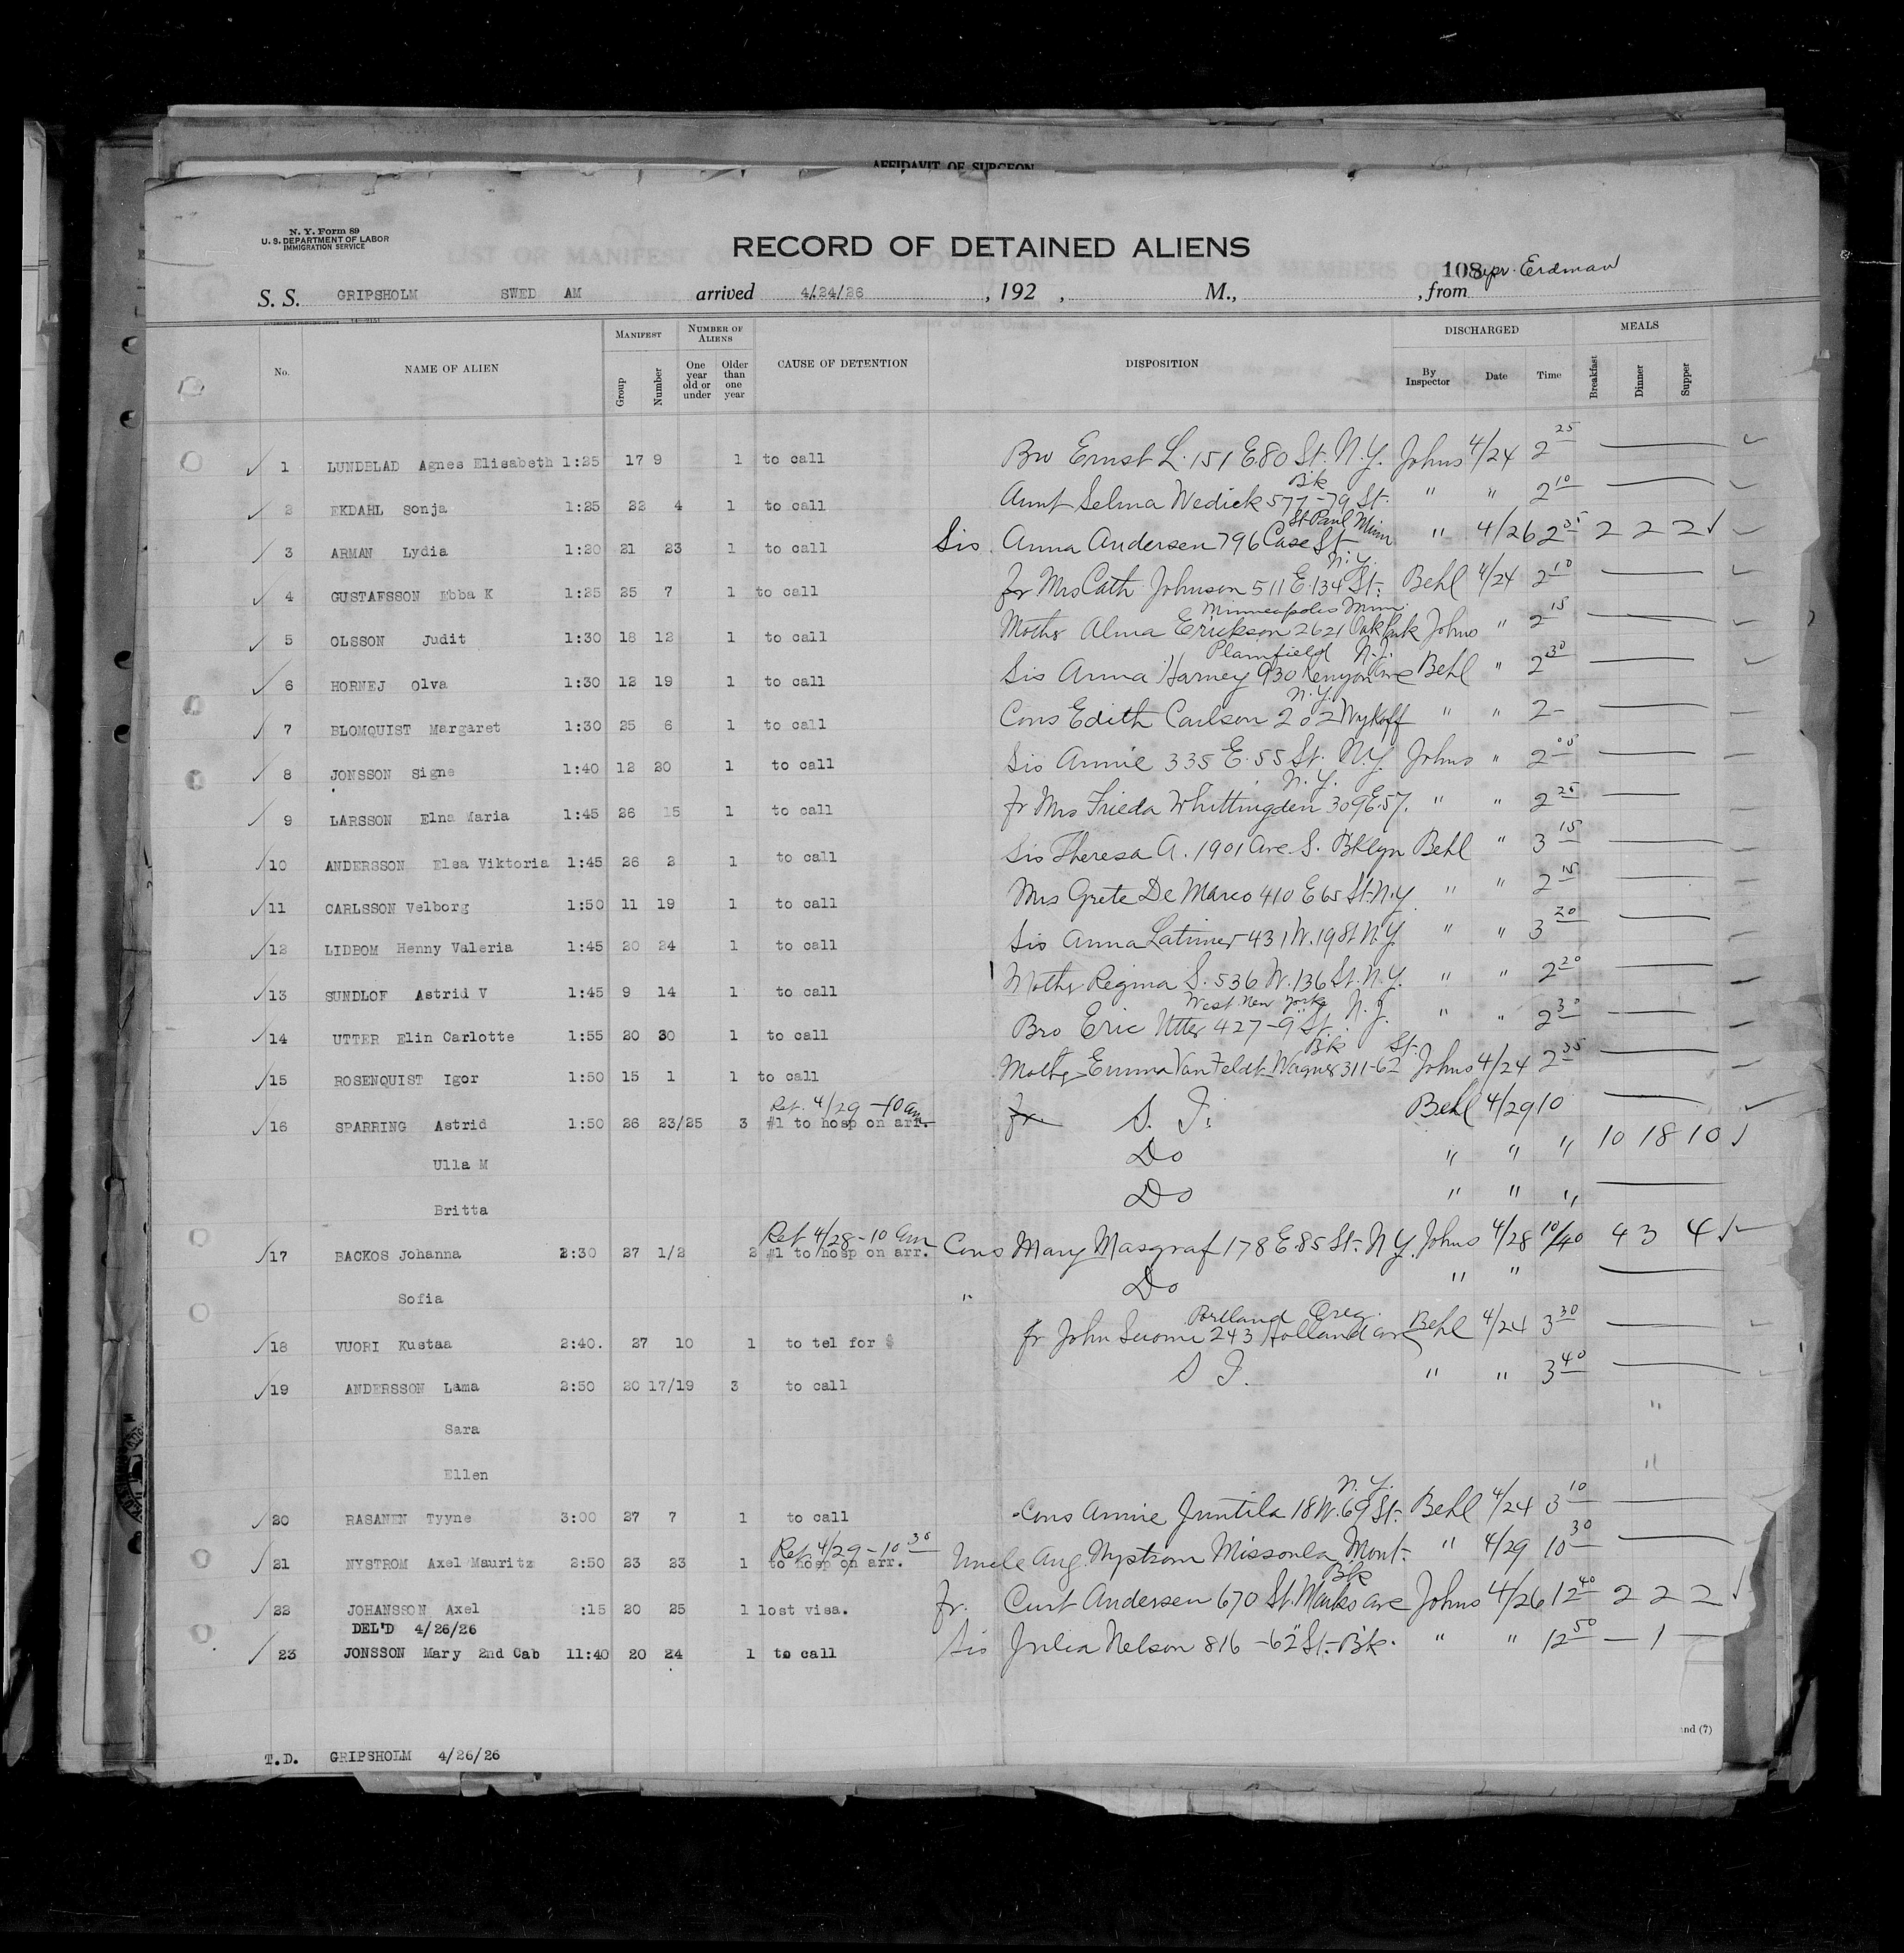 AFFIDAVIT OF SURGEON
N. Y. Form 89
U. S. DEPARTMENT OF LABOR
IMMIGRATION SERVICE
RECORD OF DETAINED ALIENS
108 Erdman
S. S. GRIPSHOLM SWED AM arrived 4/24/26 , 192 , M., , from
MANIFEST NUMBER OF ALIENS DISCHARGED MEALS
No. NAME OF ALIEN Group Number One year old or under Older than one year CAUSE OF DETENTION DISPOSITION By Inspector Date Time Breakfast Dinner Supper
1 LUNDBLAD Agnes Elisabeth 1:25 17 9 1 to call Bro Ernst L. 151 E 80 St. N.Y. Johns 4/24 2 25
Bk
2 EKDAHL Sonja 1:25 22 4 1 to call Aunt Selma Wedick 577-79 St. " " 2 10
St Paul Minn
3 ARMAN Lydia 1:20 21 23 1 to call Sis Anna Andersen 796 Case St " 4/26 2 35 2 2 2
N.Y.
4 GUSTAFSSON Ebba K 1:25 25 7 1 to call fr Mrs Cath Johnson 511 E. 134 St. Behl 4/24 2 10
Minneapolis Minn.
5 OLSSON Judit 1:30 18 12 1 to call Mother Alma Erickson 2621 Oak Park Johns " 2 15
Plainfield N.J.
6 HORNEJ Olva 1:30 12 19 1 to call Sis Anna Harney 930 Kenyon Ave Behl " 2 30
N.Y.
7 BLOMQUIST Margaret 1:30 25 6 1 to call Cons Edith Carlson 202 Wykoff " " 2-
8 JONSSON Signe 1:40 12 20 1 to call Sis Annie 335 E. 55 St. N.Y. Johns " 2 05
N.Y.
9 LARSSON Elna Maria 1:45 26 15 1 to call fr Mrs Frieda Whittingden 309 E. 57. " " 2 25
10 ANDERSSON Elsa Viktoria 1:45 26 2 1 to call Sis Theresa A. 1901 Ave. S. Bklyn Behl " 3 15
11 CARLSSON Velborg 1:50 11 19 1 to call Mrs Grete De Marco 410 E 65 St. N.Y. " " 2 15
12 LIDBOM Henny Valeria 1:45 20 24 1 to call Sis Anna Latimer 431 W. 19 St N.Y. " " 3 20
13 SUNDLOF Astrid V 1:45 9 14 1 to call Mother Regina S. 536 W. 136 St. N.Y. " " 2 20
West New York N.J.
14 UTTER Elin Carlotte 1:55 20 30 1 to call Bro Eric Utter 427-9" St. " " 2 30
Bk St.
15 ROSENQUIST Igor 1:50 15 1 1 to call Mother Emma Van Feldt Wagner 311-62 Johns 4/24 2 35
Ret. 4/29 - 10 am
16 SPARRING Astrid 1:50 26 23/25 3 #1 to hosp on arr. fr S. I. Behl 4/29 10
Ulla M Do " " " 10 18 10
Britta Do " " "
Ret 4/28 - 10 am
17 BACKOS Johanna 2:30 27 1/2 2 #1 to hosp on arr. Cons Mary Masgraf 178 E. 85 St. N.Y. Johns 4/28 10/40 4 3 4
Sofia " Do " "
Portland Oreg.
18 VUORI Kustaa 2:40. 27 10 1 to tel for $ fr John Suomi 243 Holland ave Behl 4/24 3 30
19 ANDERSSON Lama 2:50 20 17/19 3 to call S I. " " 3 40
Sara "
Ellen "
N.Y.
20 RASANEN Tyyne 3:00 27 7 1 to call Cons Annie Juntila 18 W. 69 St. Behl 4/24 3 10
Ret 4/29 - 10 30
21 NYSTROM Axel Mauritz 2:50 23 23 1 to hosp on arr. Uncle Aug. Nystrom Missoula Mont. " 4/29 10 30
Bk
22 JOHANSSON Axel :15 20 25 1 lost visa. fr. Curt Andersen 670 St. Marks ave Johns 4/26 12 40 2 2 2
DEL'D 4/26/26
23 JONSSON Mary 2nd Cab 11:40 20 24 1 to call Sis Julia Nelson 816-62" St. Bk. " " 12 50 - 1 -
nd (7)
T.D. GRIPSHOLM 4/26/26